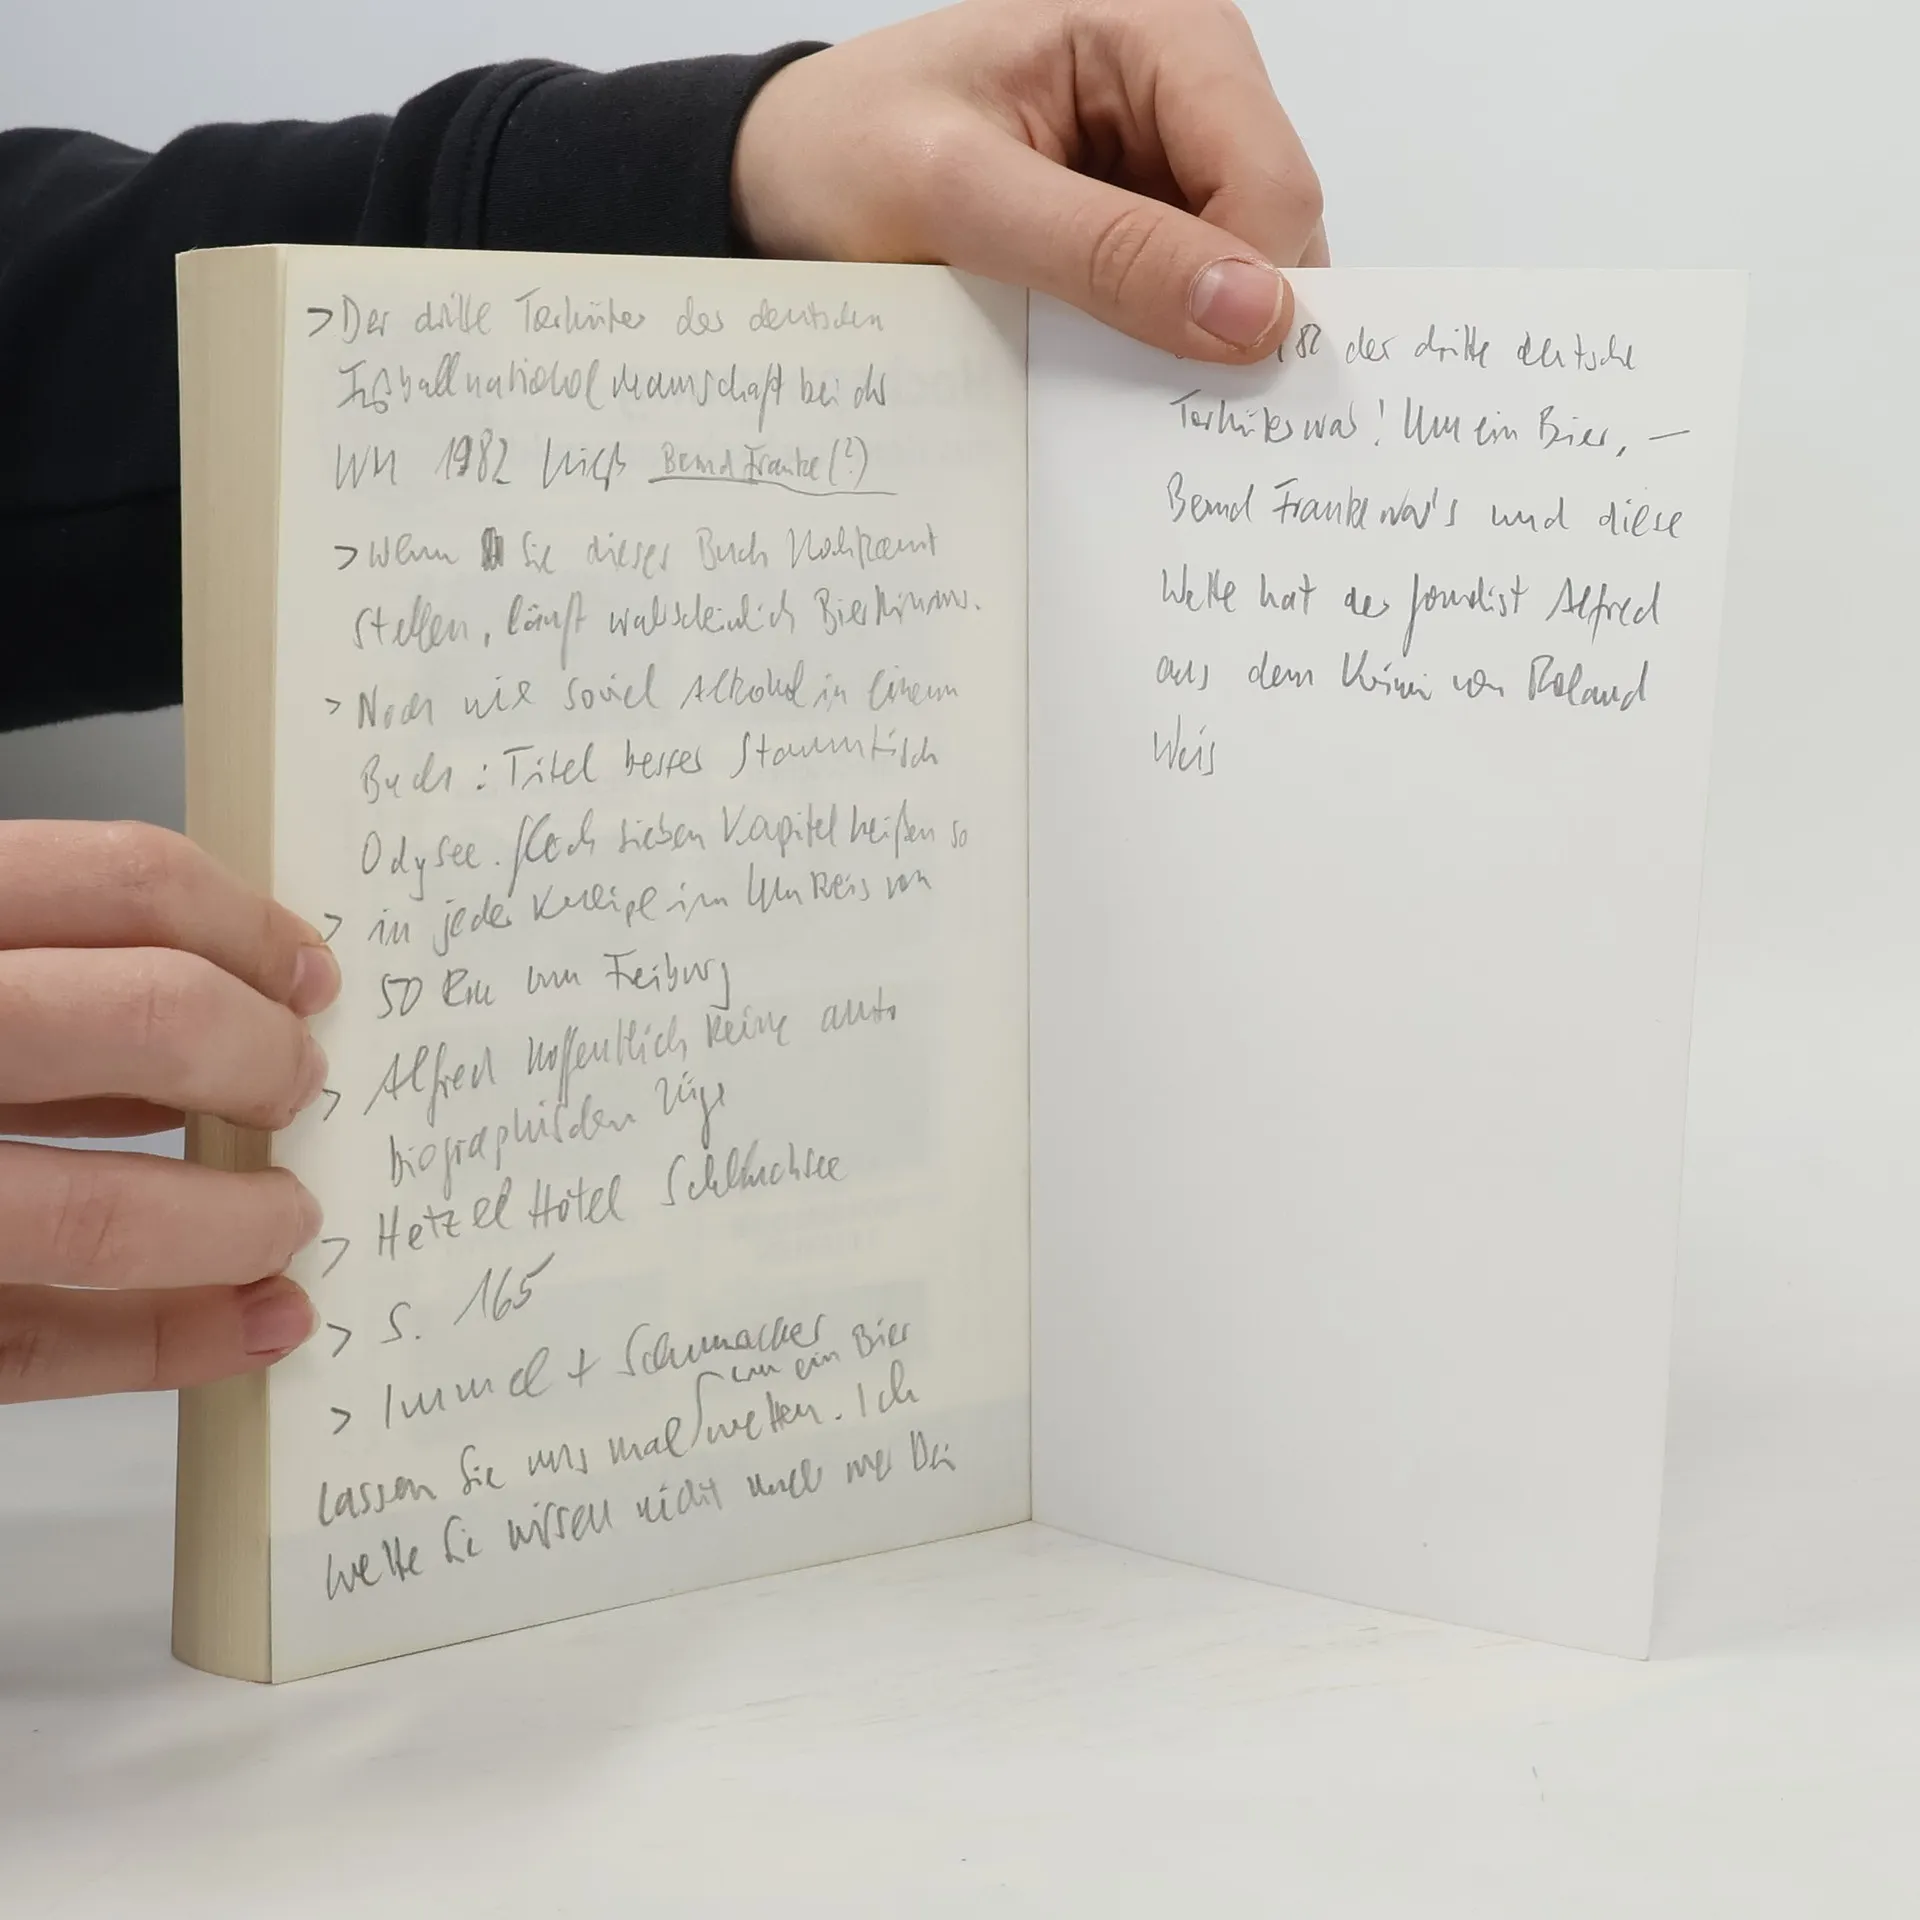 > Der dritte Torhüter der deutschen
Fußballnationalmannschaft bei der
WM 1982 hieß Bernd Franke (?)
> Wenn Sie dieses Buch
stellen, läuft wahrscheinlich
> Noch nie soviel Alkohol in einem
Buch : Titel besser Stammtisch
Odysee. sieben Kapitel heißen so
> in jeder Kneipe im Umkreis von
50 km um Freiburg
> Alfred hoffentlich keine auto
biographischen Züge
> Hetzel Hotel Schluchsee
> S. 165
> Immel + Schumacher
um ein Bier
lassen Sie uns mal wetten. Ich
wette Sie wissen nicht mehr wer bei
82 der dritte deutsche
Torhüter war! Um ein Bier, —
Bernd Franke war's und diese
Wette hat der Journalist Alfred
aus dem Krimi von Roland
Weis